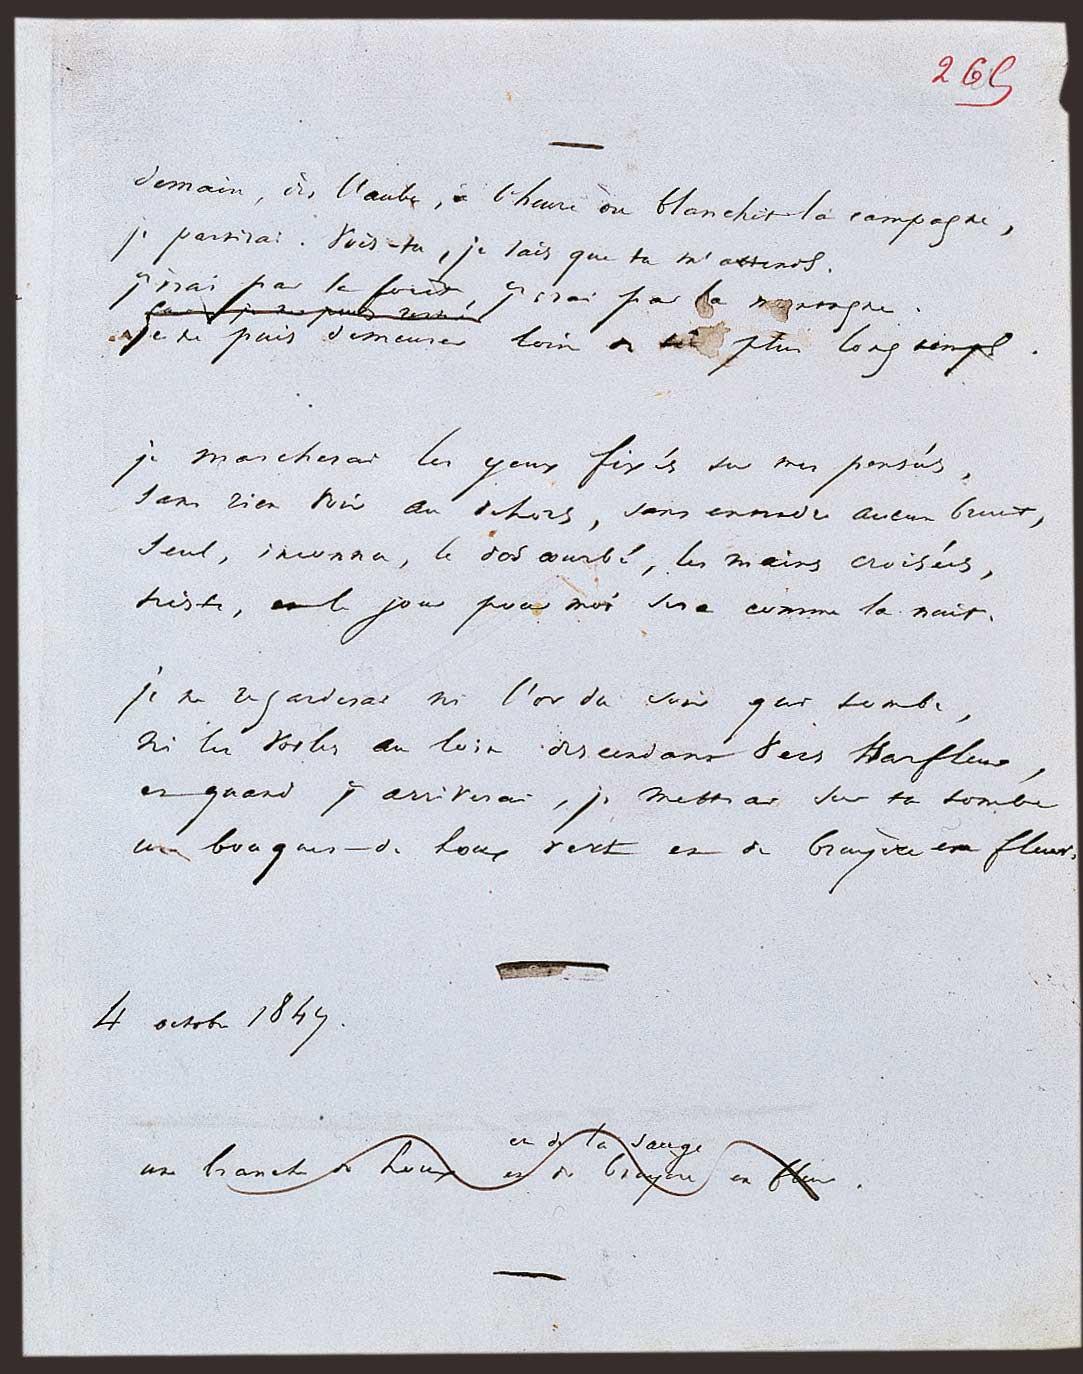 265
demain, dès l'aube, à l'heure où blanchit la campagne,
je partirai. Vois-tu, je sais que tu m'attends.
j'irai par la forêt, j'irai par la montagne.
je ne puis rester
je ne puis demeurer loin de toi plus longtemps.
je marcherai les yeux fixés sur mes pensées,
sans rien voir au dehors, sans entendre aucun bruit,
seul, inconnu, le dos courbé, les mains croisées,
triste, et le jour pour moi sera comme la nuit.
je ne regarderai ni l'or du soir qui tombe,
ni les voiles au loin descendant vers Harfleur,
et quand j'arriverai, je mettrai sur ta tombe
un bouquet de houx vert et de bruyère en fleur.
4 octobre 1847.
et de la sauge
une branche de houx et de bruyère en fleur.